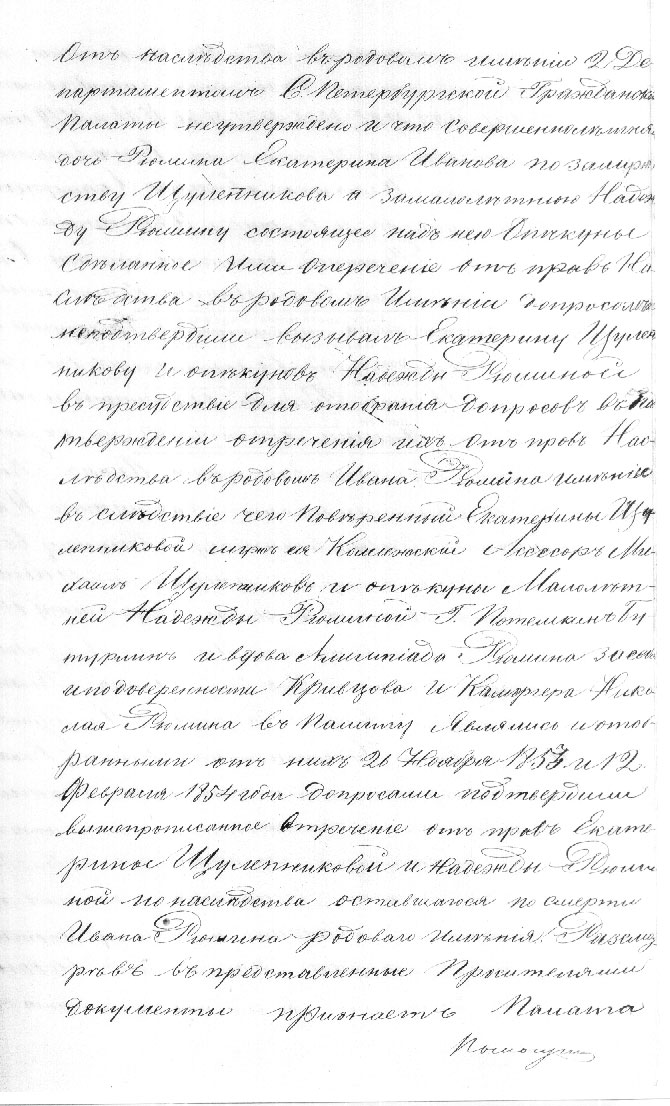 Отъ наслѣдства въ родовомъ имѣніи 2 Де
партаментомъ С Петербургской Гражданской
Палаты неутверждено и что Совершеннолѣтняя
дочь Рюмина Екатерина Иванова по замуже
ству Щулепникова а за малолѣтнюю Надеж
ду Рюмину состоящее надъ нею Опекуны
Сдѣланное ими отреченіе отъ правъ На
слѣдства въ родовомъ Имѣніи допросомъ
неподтвердили вызывалъ Екатерину Щулеп
никову и опѣкуновъ Надежды Рюминой
въ присудствіе для отобранія допросовъ въ под
твержденіи отреченія ихъ отъ правъ Нас-
лѣдства въ родовомъ Ивана Рюмина имѣніи
въ слѣдствіе чего Повѣренный Екатерины Щу
лепниковой мужъ ея Колежскій Асесоръ Ми-
хаилъ Щулепниковъ и опѣкуны Малолѣт-
ней Надежды Рюминой Г. Потемкинъ Бу
турлинъ и вдова Алимпіада Рюмина за себя
и по доверенности Кривцова и Камергера Нико
лая Рюмина въ Палату Являлись и отоб
ранными отъ нихъ 26 Ноября 1853 и 12
Февраля 1854 годовъ допросами подтвердили
вышепрописанное Отреченіе отъ правъ Екате
рины Щулепниковой и Надежды Рюми
ной по наслѣдства оставшагося по смерти
Ивана Рюмина родоваго имѣнія. Разсмот
рѣвъ въ представленные Просителями
документы признаетъ Палата